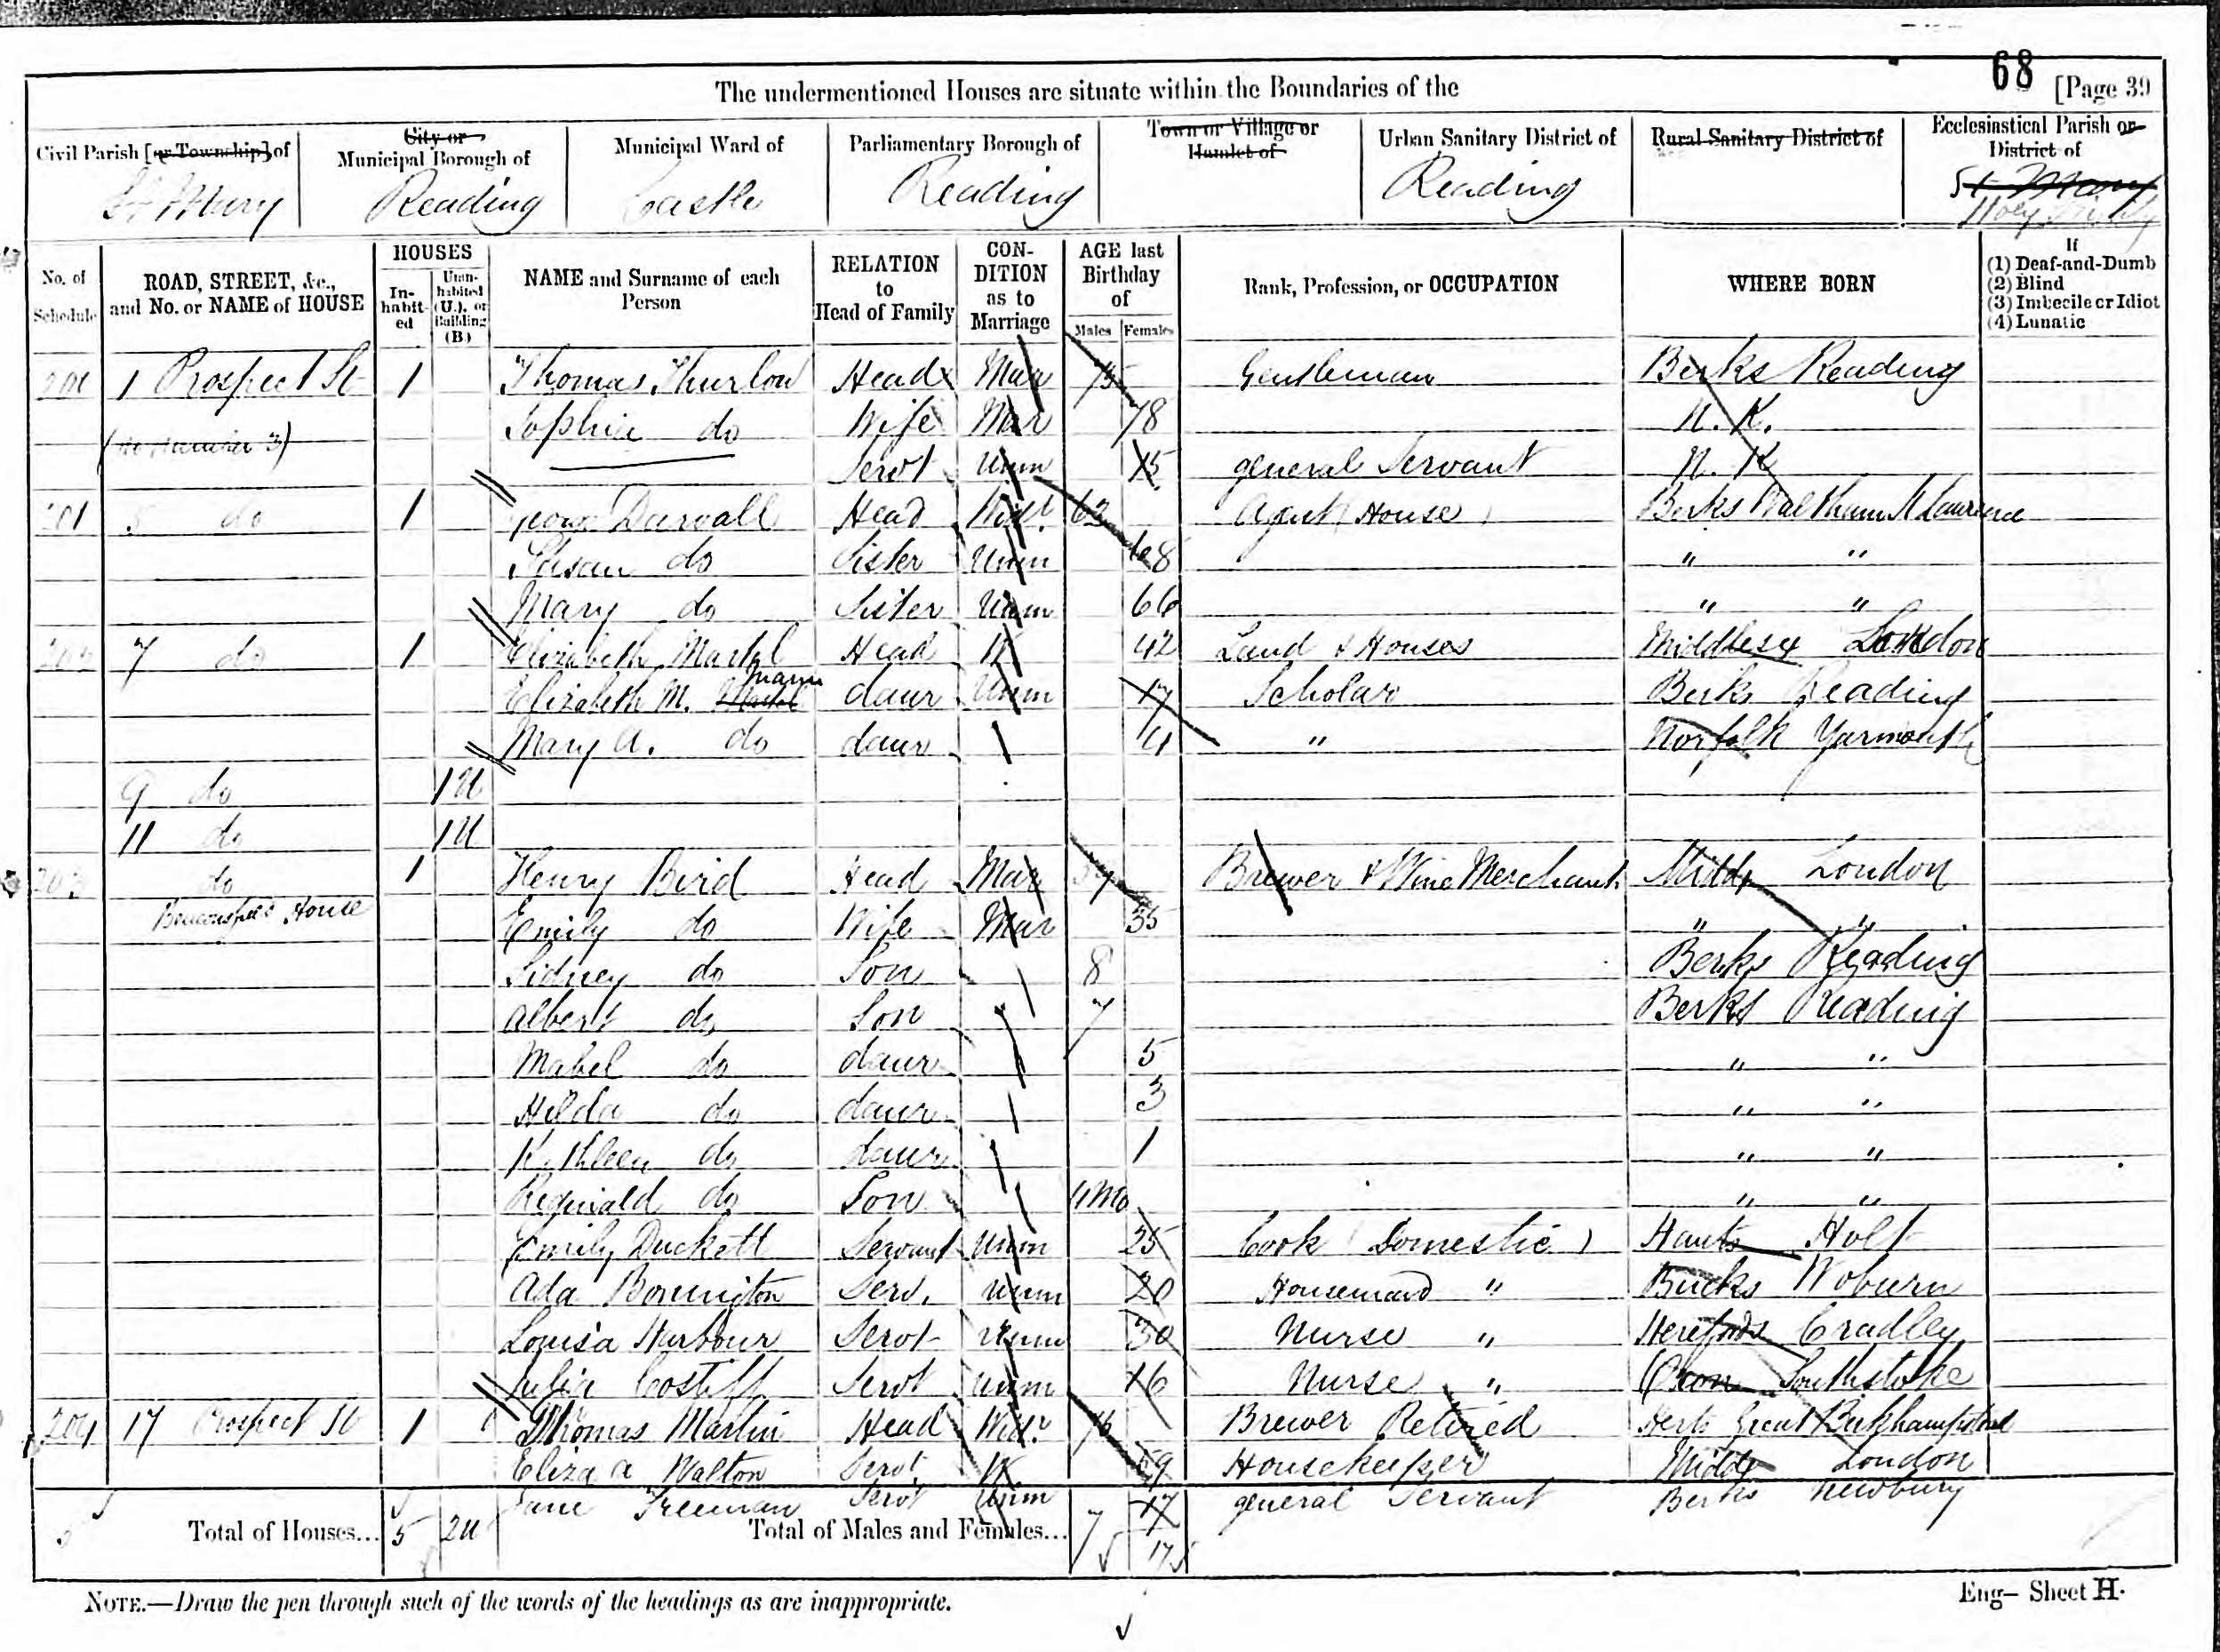 68 [Page 39
The undermentioned Houses are situate within the Boundaries of the
Civil Parish [or Township] of
City or Municipal Borough of
Municipal Ward of
Parliamentary Borough of
Town or Village or Hamlet of
Urban Sanitary District of
Rural Sanitary District of
Ecclesiastical Parish or District of
St Mary Reading Castle Reading Reading St Mary
Holy
No. of Schedule
ROAD, STREET, &c., and No. or NAME of HOUSE
HOUSES
In-habit-ed
Unin-habited (U.), or Building (B.)
NAME and Surname of each Person
RELATION to Head of Family
CON-DITION as to Marriage
AGE last Birthday of
Males Females
Rank, Profession, or OCCUPATION
WHERE BORN
If
(1) Deaf-and-Dumb
(2) Blind
(3) Imbecile or Idiot
(4) Lunatic
1 Prospect St 1 Thomas Thurlow Head Mar 75 Gentleman Berks Reading
Sophia do Wife Mar 78 N. K.
Servt Unm 15 general Servant N. K
201 5 do 1 Darvall Head 62 Agent (House) Berks Waltham St Laurence
Susan do Sister Unm 68 " "
Mary do Sister Unm 66 " "
202 7 do 1 Elizabeth Head W 42 Land & Houses Middlesex London
Elizabeth M. daur Unm 17 Scholar Berks Reading
Mary A. do daur 4 " Norfolk Yarmouth
9 do 1U
11 do 1U
203 do 1 Henry Bird Head Mar 39 Brewer & Wine Merchant Middx London
House Emily do Wife Mar 35 " "
Sidney do Son 8 Berks Reading
Albert do Son 7 Berks Reading
Mabel do daur 5 " "
Hilda do daur 3 " "
Kathleen do daur 1 " "
Reginald do Son 4 Mo " "
Emily Duckett Servant Unm 25 Cook (Domestic) Hants Holt
Ada Bonnington Serv. Unm 20 Housemaid " Bucks Woburn
Louisa Harbour Servt Unm 30 Nurse " Herefords Cradley
Julia Costiff Servt Unm 16 Nurse " Oxon Southstoke
204 17 Prospect St 1 Thomas Martin Head Widr 76 Brewer Retired Herts Great Berkhampstead
Eliza A Walton Servt W. 59 Housekeeper Middx London
Jane Freeman Servt Unm 17 general Servant Berks Newbury
Total of Houses... 5 2U Total of Males and Females... 7 17
NOTE.—Draw the pen through such of the words of the headings as are inappropriate.
Eng– Sheet H.